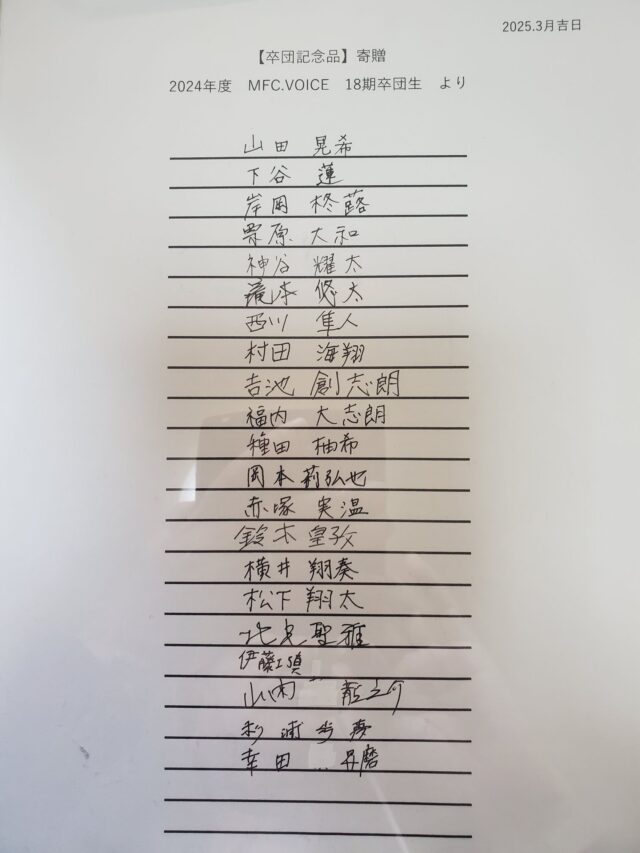 2025.3月吉日
【卒団記念品】寄贈
2024年度 MFC.VOICE 18期卒団生 より
山田 晃希
下谷 蓮
岸岡 柊蕗
栗原 大和
神谷 耀太
滝本 悠太
西川 隼人
村田 海翔
吉池 創志朗
福内 大志朗
種田 柚希
岡本 莉弘也
赤塚 実温
鈴木 皇孜
横井 翔奏
松下 翔太
北見 聖雅
伊藤
山内 龍之介
杉浦 歩真
幸田